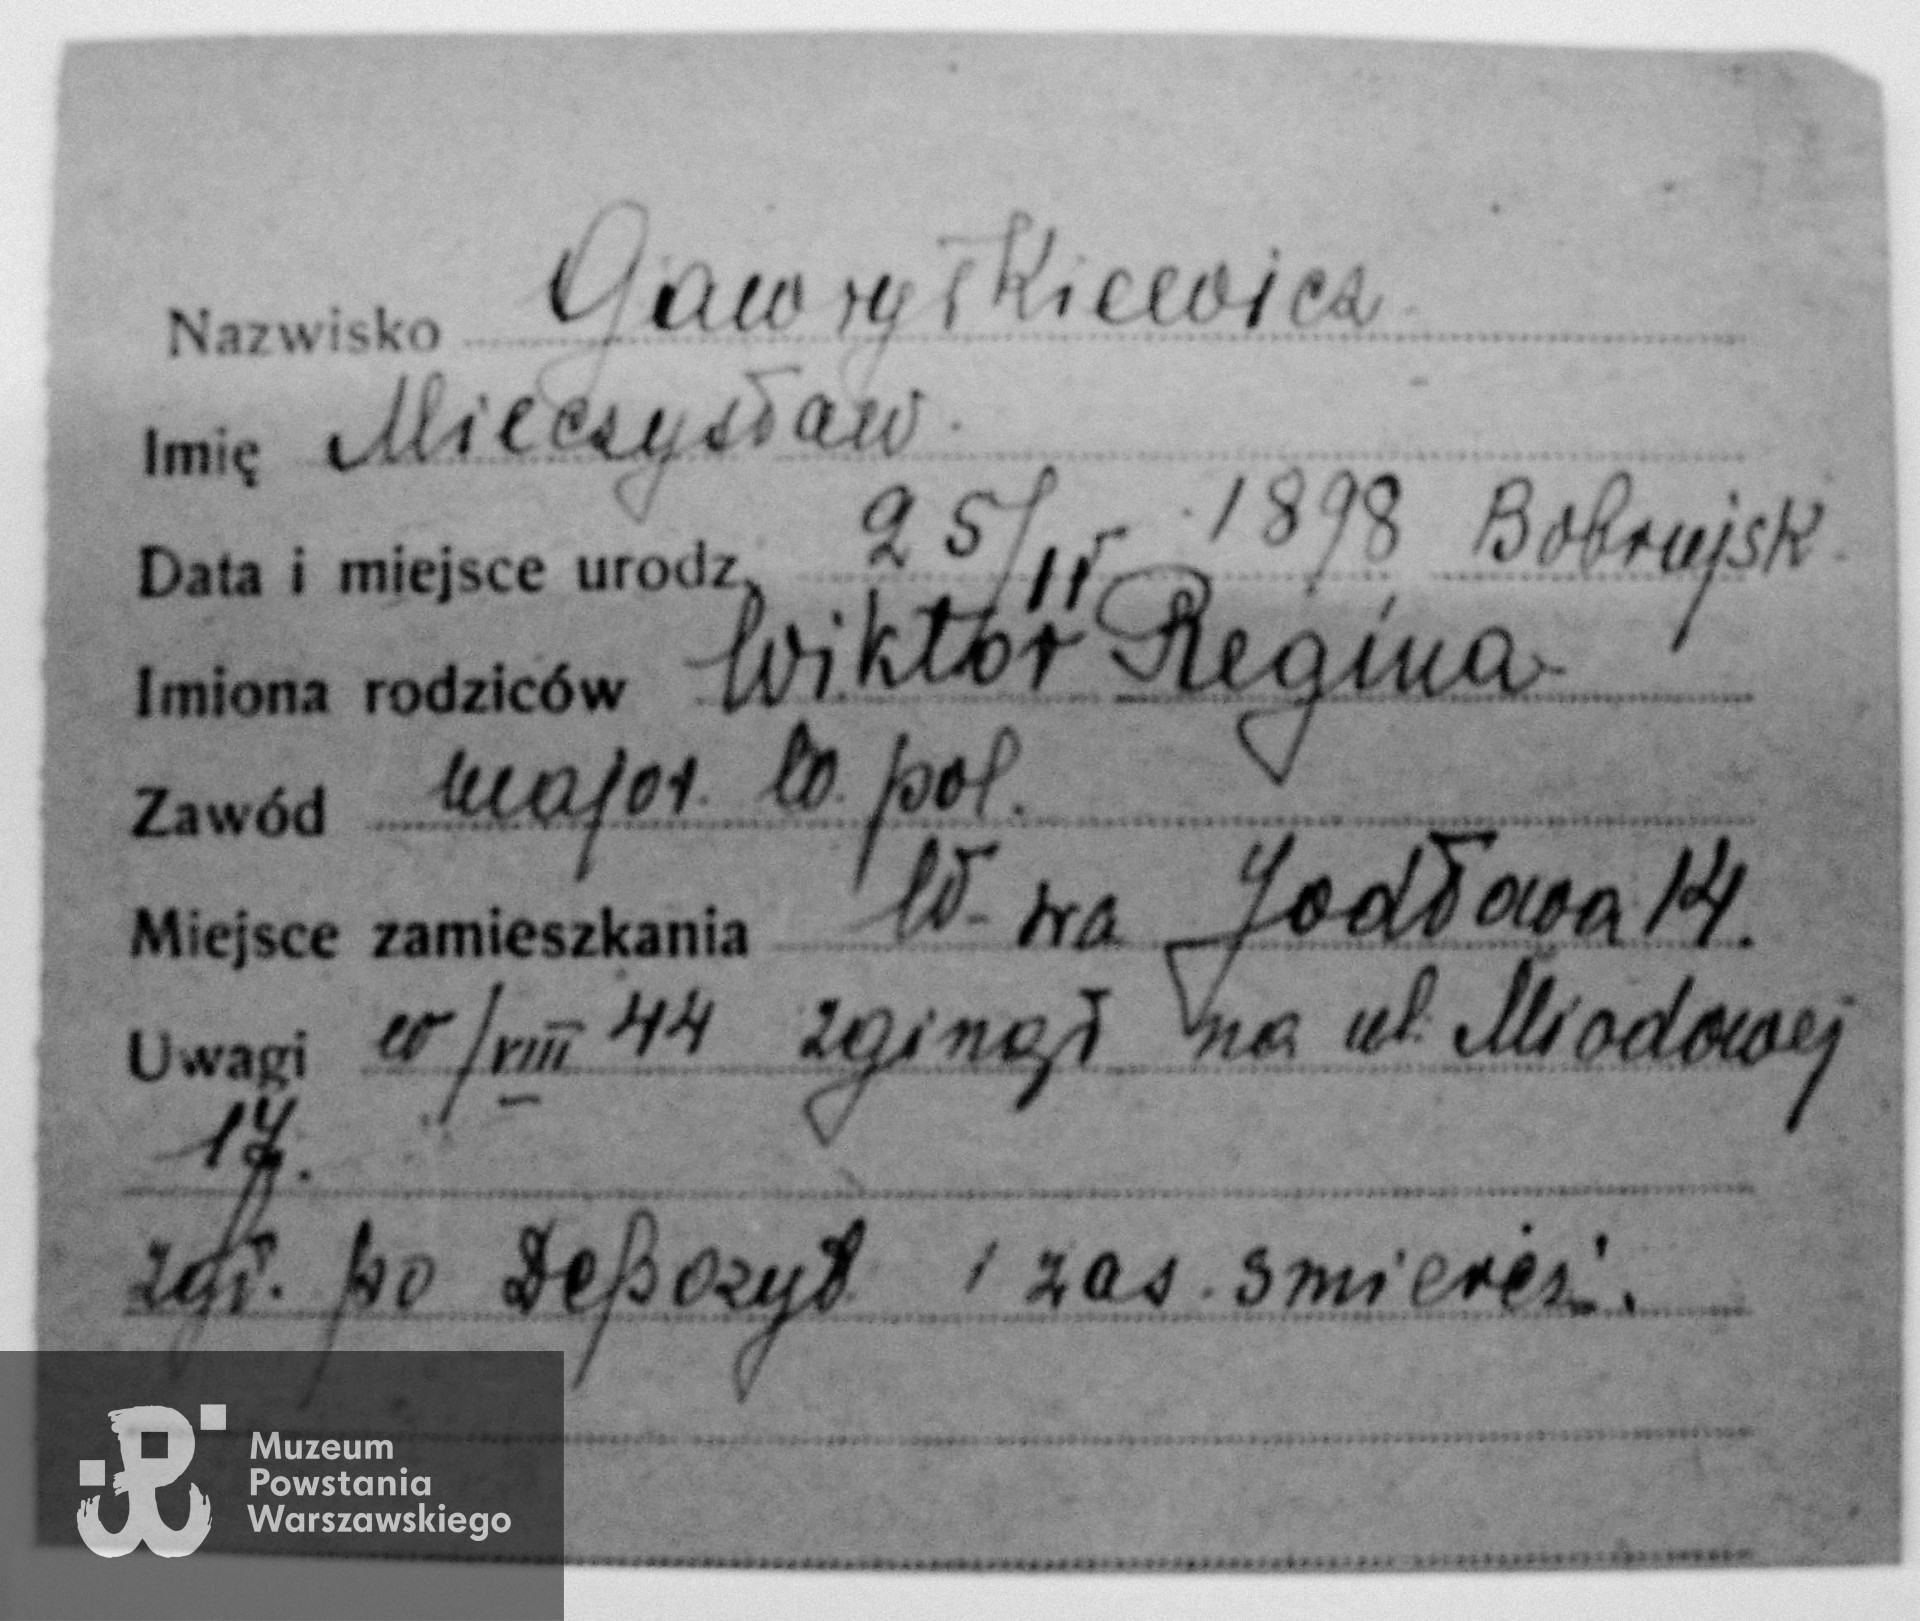 Nazwisko Gawryłkiewicz
Imię Mieczysław.
Data i miejsce urodz. 25/IV 1898 Bobrujsk
Imiona rodziców Wiktor Regina
Zawód major. W. pol.
Miejsce zamieszkania W-wa Jodłowa 14.
Uwagi w/VIII 44 zginął na ul. Miodowej
17.
zgł. po Depozyt i zaś. śmierci.
Muzeum
Powstania
Warszawskiego